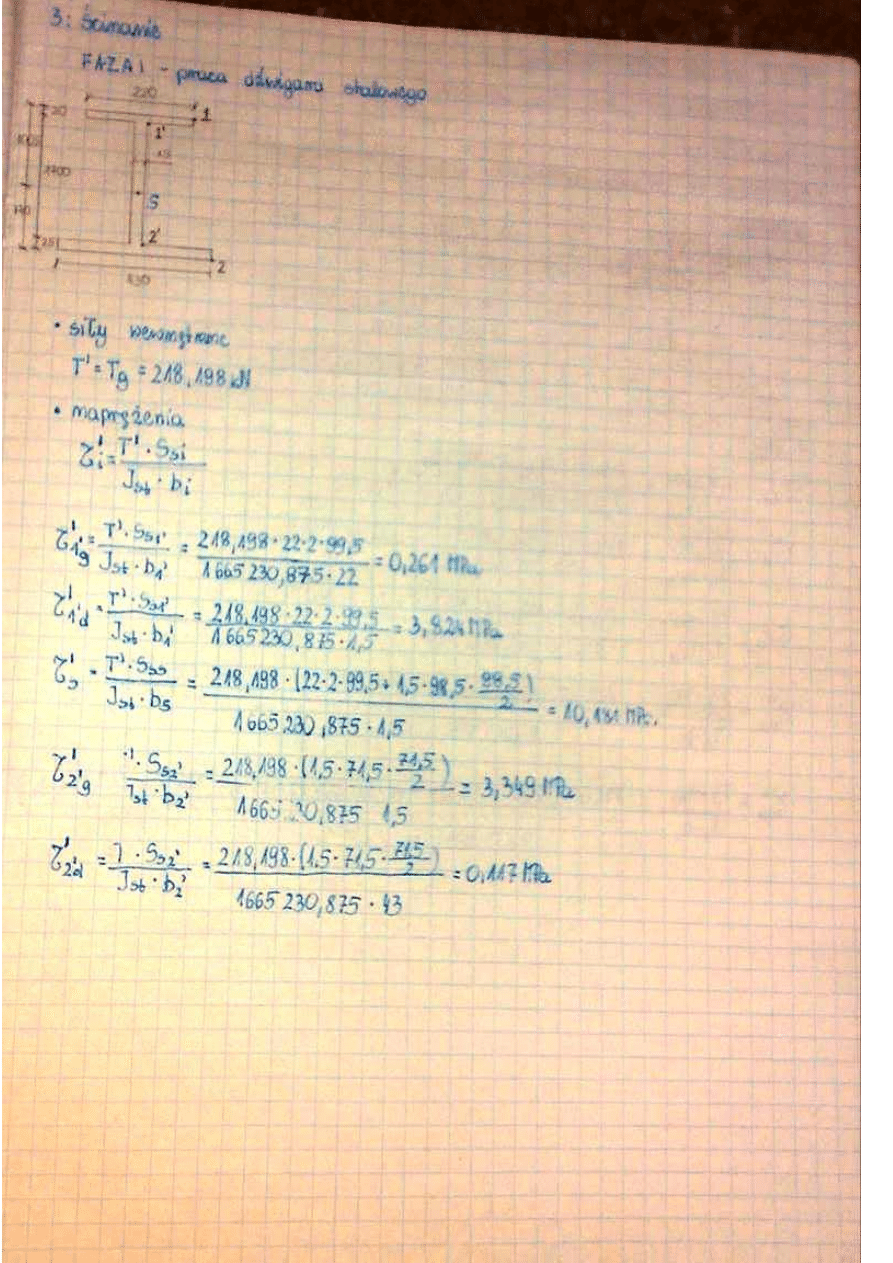 3: Ścinanie
FAZA I - praca dźwigara stalowego
220
20
1
1'
15
1700
S
2'
25
2
430
• siły wewnętrzne
T' = Tg = 218,198 kN
• naprężenia
τ'i = T' · Ssi / Jst · bi
τ'1'g = T' · Ss1' / Jst · b1' = 218,198 · 22 · 2 · 99,5 / 1665 230,875 · 22 = 0,261 MPa
τ'1'd = T' · Ss1' / Jst · b1' = 218,198 · 22 · 2 · 99,5 / 1665 230,875 · 1,5 = 3,824 MPa
τ's = T' · Sss / Jst · bs = 218,198 · (22 · 2 · 99,5 + 1,5 · 98,5 · 98,5 / 2) / 1665 230,875 · 1,5 = 10,181 MPa.
τ'2'g · Ss2' / Jst · b2' = 218,198 · (1,5 · 71,5 · 71,5 / 2) / 1665 230,875 1,5 = 3,349 MPa
τ'2'd = T · Ss2' / Jst · b2' = 218,198 · (1,5 · 71,5 · 71,5 / 2) / 1665 230,875 · 43 = 0,117 MPa